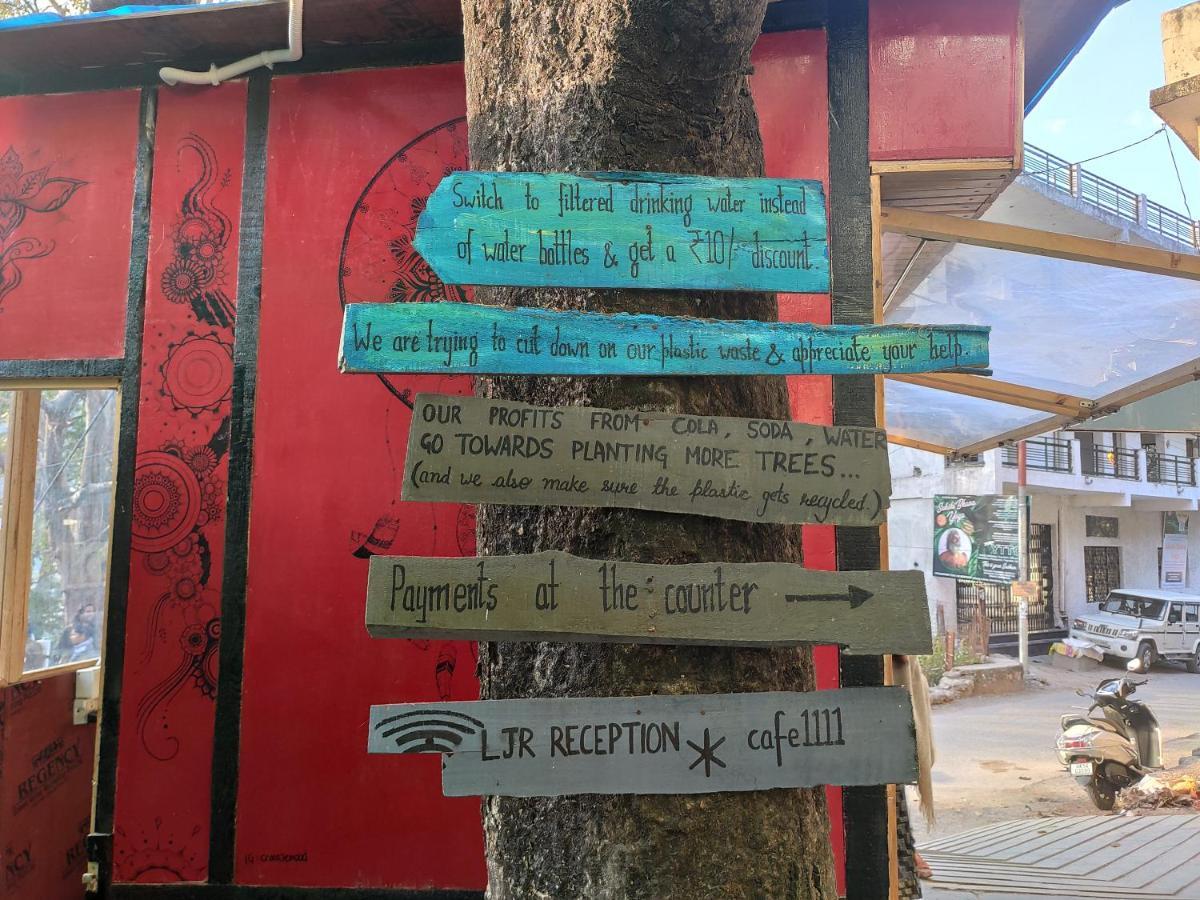 Switch to filtered drinking water instead
of water bottles & get a ₹10/- discount.
We are trying to cut down on our plastic waste & appreciate your help.
OUR PROFITS FROM COLA, SODA, WATER
GO TOWARDS PLANTING MORE TREES...
(and we also make sure the plastic gets recycled.)
Payments at the counter
LJR RECEPTION * cafe1111
REGENCY